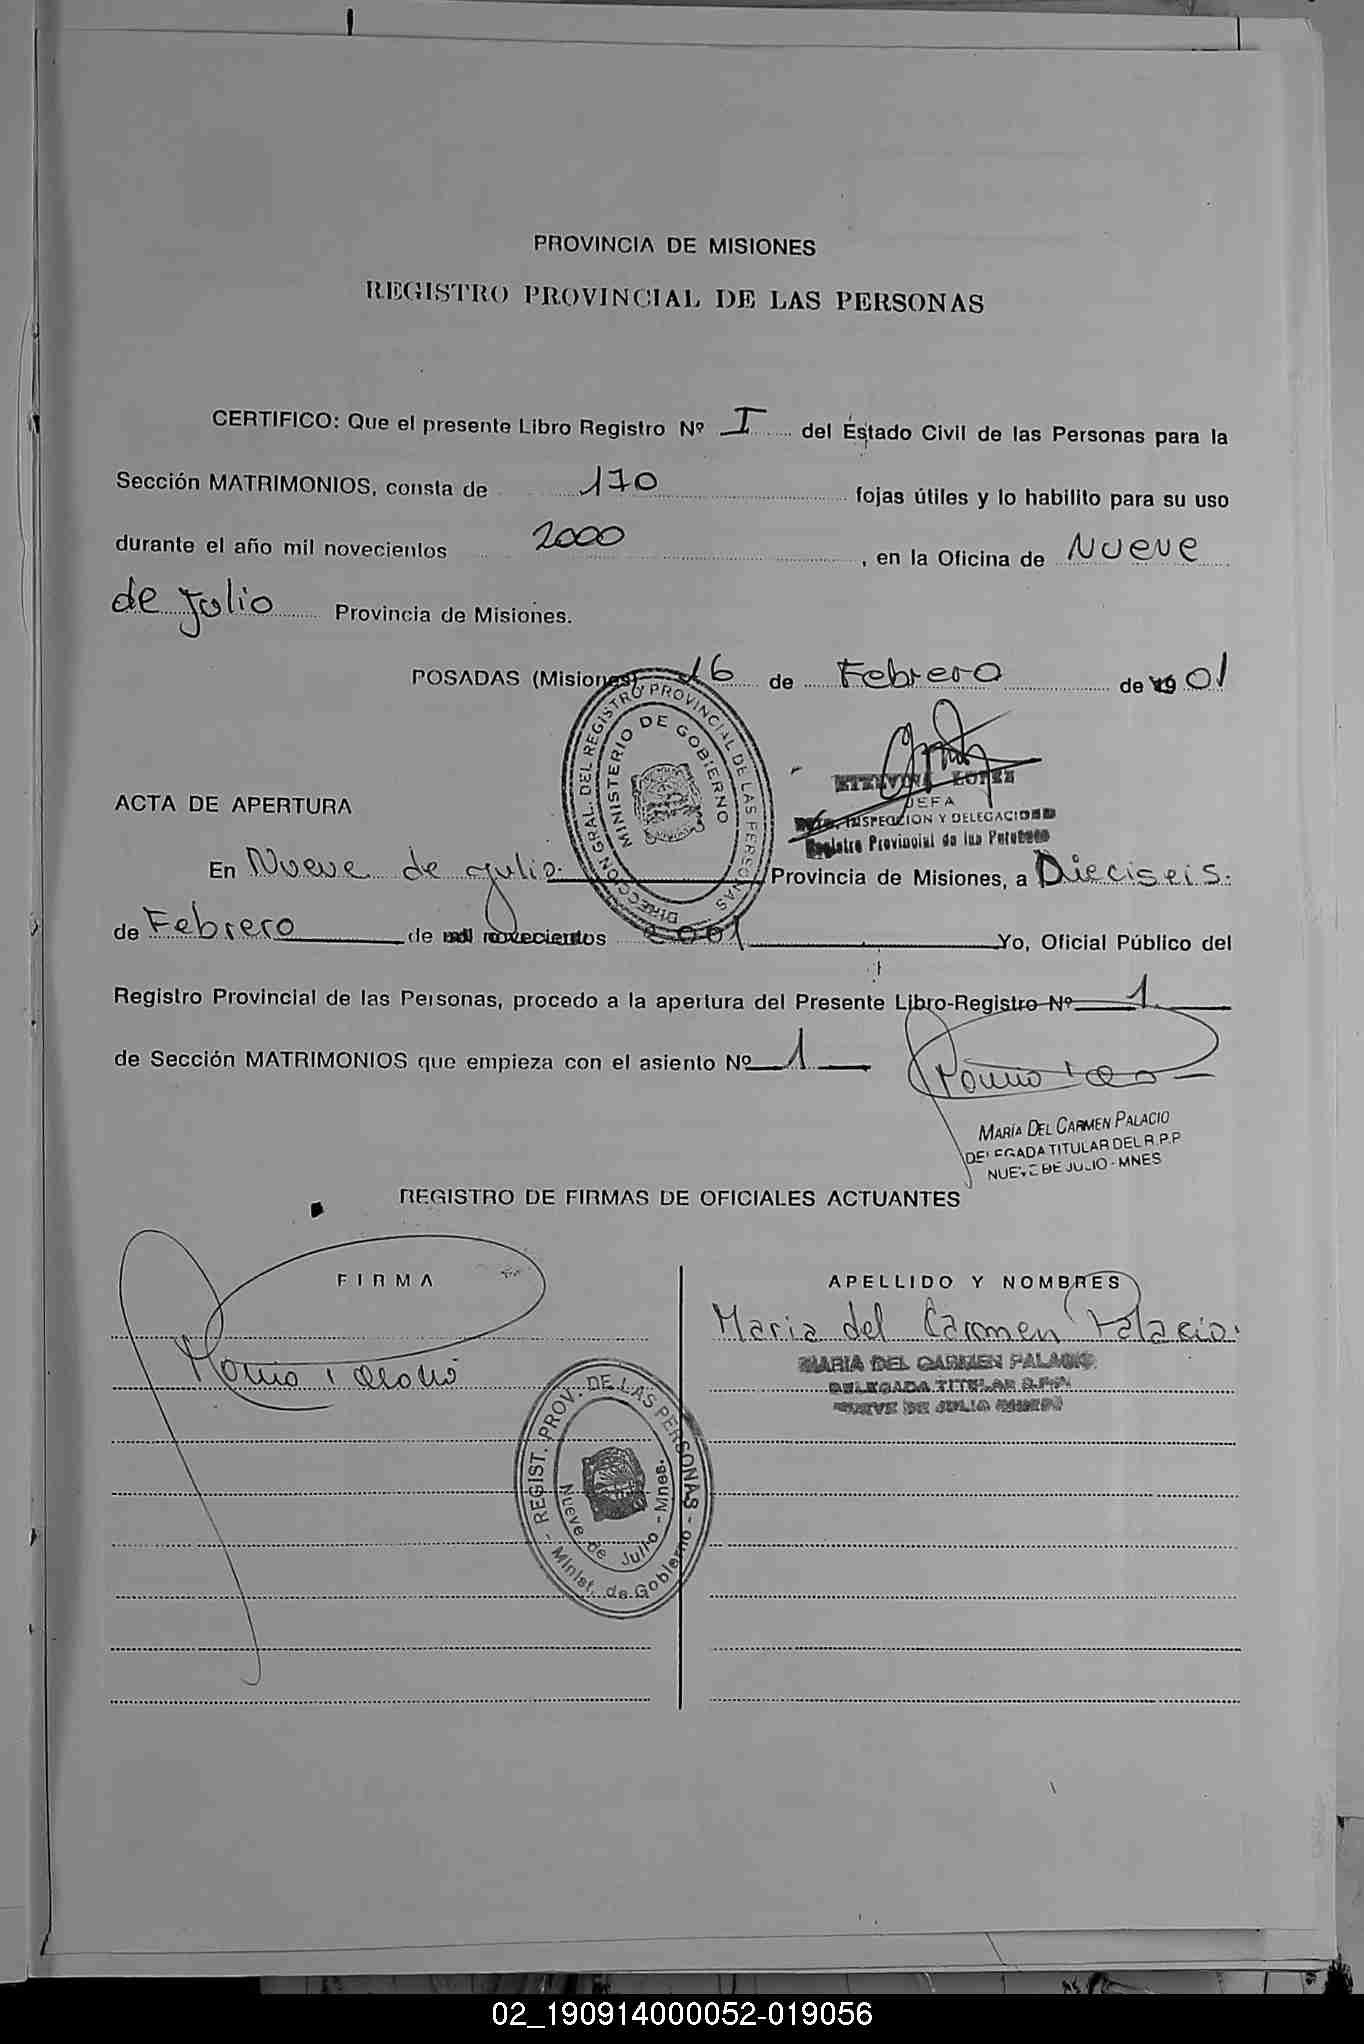 PROVINCIA DE MISIONES
REGISTRO PROVINCIAL DE LAS PERSONAS
CERTIFICO: Que el presente Libro Registro Nº I del Estado Civil de las Personas para la
Sección MATRIMONIOS, consta de 170 fojas útiles y lo habilito para su uso
durante el año mil novecientos 2000, en la Oficina de Nueve
de Julio Provincia de Misiones.
POSADAS (Misiones) 16 de Febrero de 19 01
DIRECCION GRAL. DEL REGISTRO PROVINCIAL DE LAS PERSONAS
MINISTERIO DE GOBIERNO
ETELVINA LOPEZ
JEFA
DPTO. INSPECCION Y DELEGACIONES
Registro Provincial de las Personas
ACTA DE APERTURA
En Nueve de Julio. Provincia de Misiones, a Dieciseis.
de Febrero de mil novecientos 2001 Yo, Oficial Público del
Registro Provincial de las Personas, procedo a la apertura del Presente Libro-Registro Nº 1.
de Sección MATRIMONIOS que empieza con el asiento Nº 1
MARÍA DEL CARMEN PALACIO
DELEGADA TITULAR DEL R.P.P
NUEVE DE JULIO - MNES
REGISTRO DE FIRMAS DE OFICIALES ACTUANTES
FIRMA
APELLIDO Y NOMBRES
Maria del Carmen Palacio.
MARIA DEL CARMEN PALACIO
DELEGADA TITULAR R.P.P.
NUEVE DE JULIO
- REGIST. PROV. DE LAS PERSONAS -
Minist. de Gobierno
Nueve de Julio - Mnes.
02_190914000052-019056